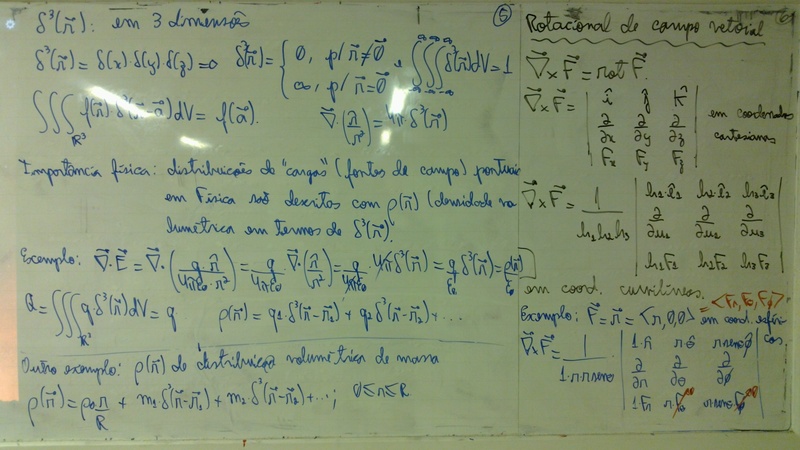 δ³(r⃗): em 3 dimensões
δ³(r⃗) = δ(x) δ(y) δ(z) = 0 δ³(r⃗) = { 0, p/ r⃗ ≠ 0⃗ ; ∞, p/ r⃗ = 0⃗ e ∫∫∫ δ³(r⃗)dV = 1
∫∫∫_ℝ³ f(r⃗) δ³(r⃗-a⃗)dV = f(a⃗). ∇⃗·(r̂/r²) = 4π δ³(r⃗)
Importância física: distribuições de "cargas" (fontes de campo) pontuais
em Física são descritos com ρ(r⃗) (densidade vo
lumétrica em termos de δ³(r⃗).
Exemplo: ∇⃗·E⃗ = ∇⃗·(q r̂/4πε₀ r²) = q/4πε₀ ∇⃗·(r̂/r²) = q/4πε₀ 4πδ³(r⃗) = q/ε₀ δ³(r⃗) = ρ(r⃗)/ε₀
Q = ∫∫∫_ℝ³ q δ³(r⃗)dV = q ρ(r⃗) = q₁ δ³(r⃗-r⃗₁) + q₂ δ³(r⃗-r⃗₂) + ...
Outro exemplo: ρ(r⃗) de distribuição volumétrica de massa
ρ(r⃗) = ρ₀ r/R + m₁ δ³(r⃗-r⃗₁) + m₂ δ³(r⃗-r⃗₂) + ...; 0 ≤ r ≤ R
5
Rotacional de campo vetorial
∇⃗×F⃗ = rot F⃗.
∇⃗×F⃗ = | î ĵ k̂ | em coordenadas
| ∂/∂x ∂/∂y ∂/∂z | cartesianas
| Fx Fy Fz |
∇⃗×F⃗ = 1/h₁h₂h₃ | h₁·ê₁ h₂·ê₂ h₃·ê₃ |
| ∂/∂u₁ ∂/∂u₂ ∂/∂u₃ |
| h₁F₁ h₂F₂ h₃F₃ |
em coord. curvilíneas.
= <Fr, Fθ, Fφ>
Exemplo: F⃗ = r⃗ = <r,0,0> em coord. esféri
cas.
∇⃗×F⃗ = 1/1·r·r senθ | 1·r̂ r θ̂ r senθ φ̂ |
| ∂/∂r ∂/∂θ ∂/∂φ |
| 1·Fr r·Fθ r senθ·Fφ |